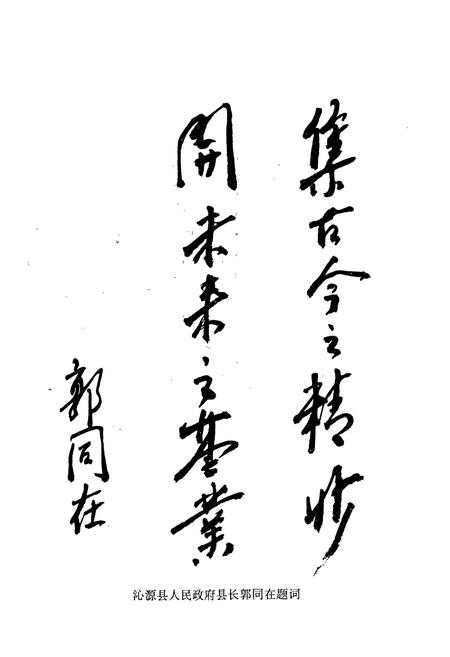 集古今之精妙
開未来之基業
郭同在
沁源县人民政府县长郭同在题词